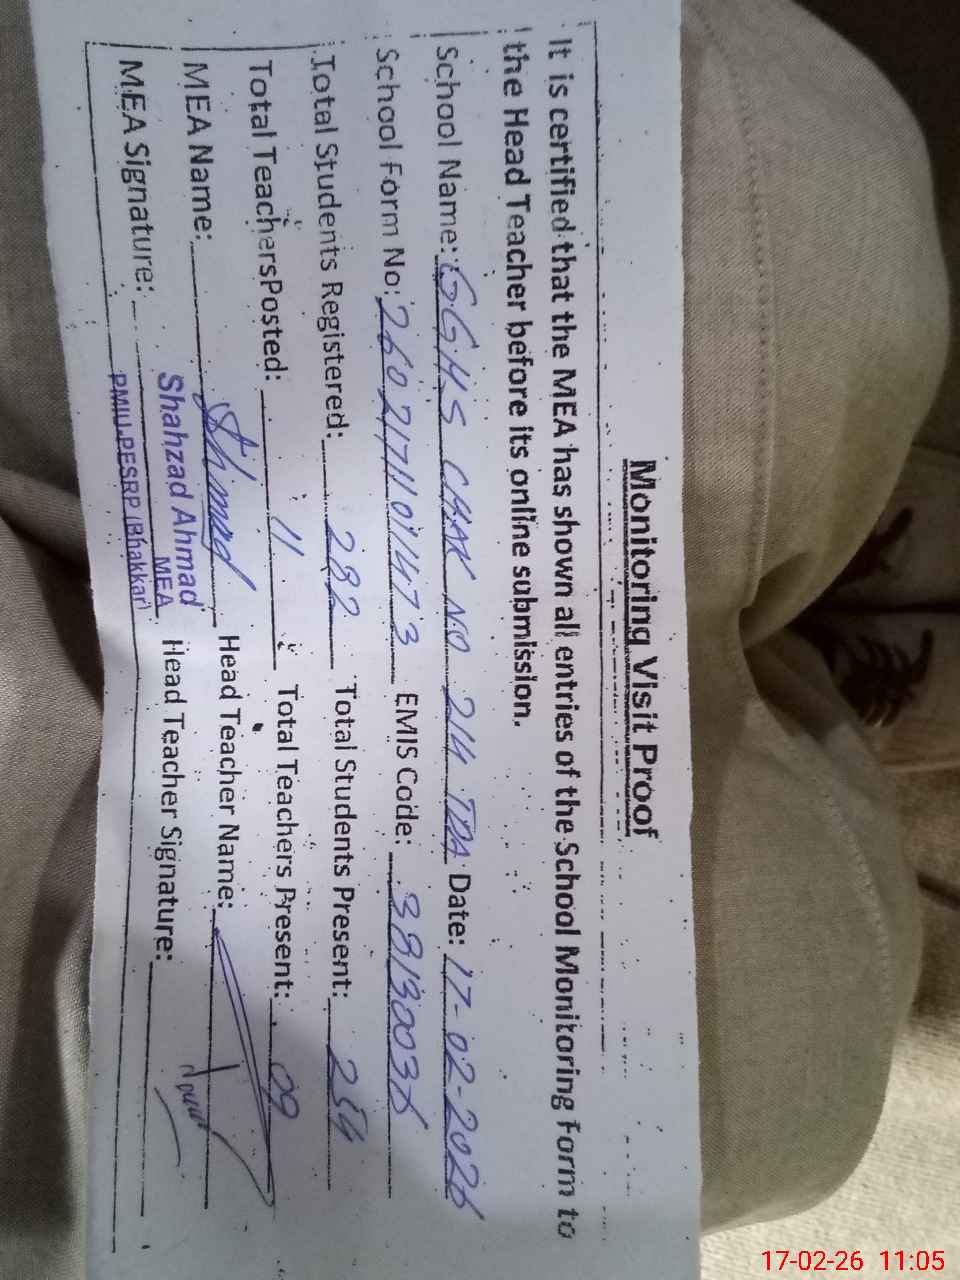 Monitoring Visit Proof
It is certified that the MEA has shown all entries of the School Monitoring Form to
the Head Teacher before its online submission.
School Name: GGHS CHAK NO 214 TDA Date: 17-02-2026
School Form No: 26021711011473 EMIS Code: 38130036
Total Students Registered: 282 Total Students Present: 254
Total Teachers Posted: 11 Total Teachers Present: 09
MEA Name: Head Teacher Name:
MEA Signature: Head Teacher Signature:
Shahzad Ahmad
MEA
PMIU-PESRP (Bhakkar)
17-02-26 11:05